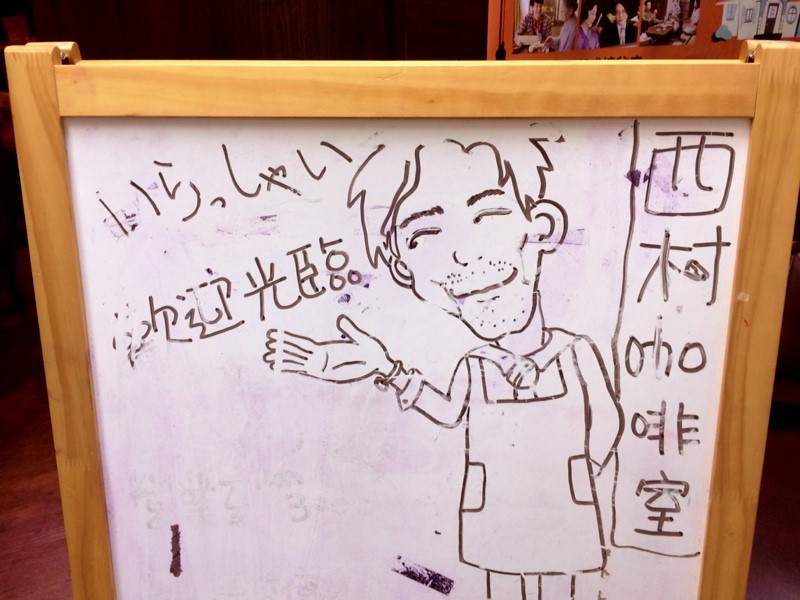 いらっしゃい
歡迎光臨
西村咖啡室